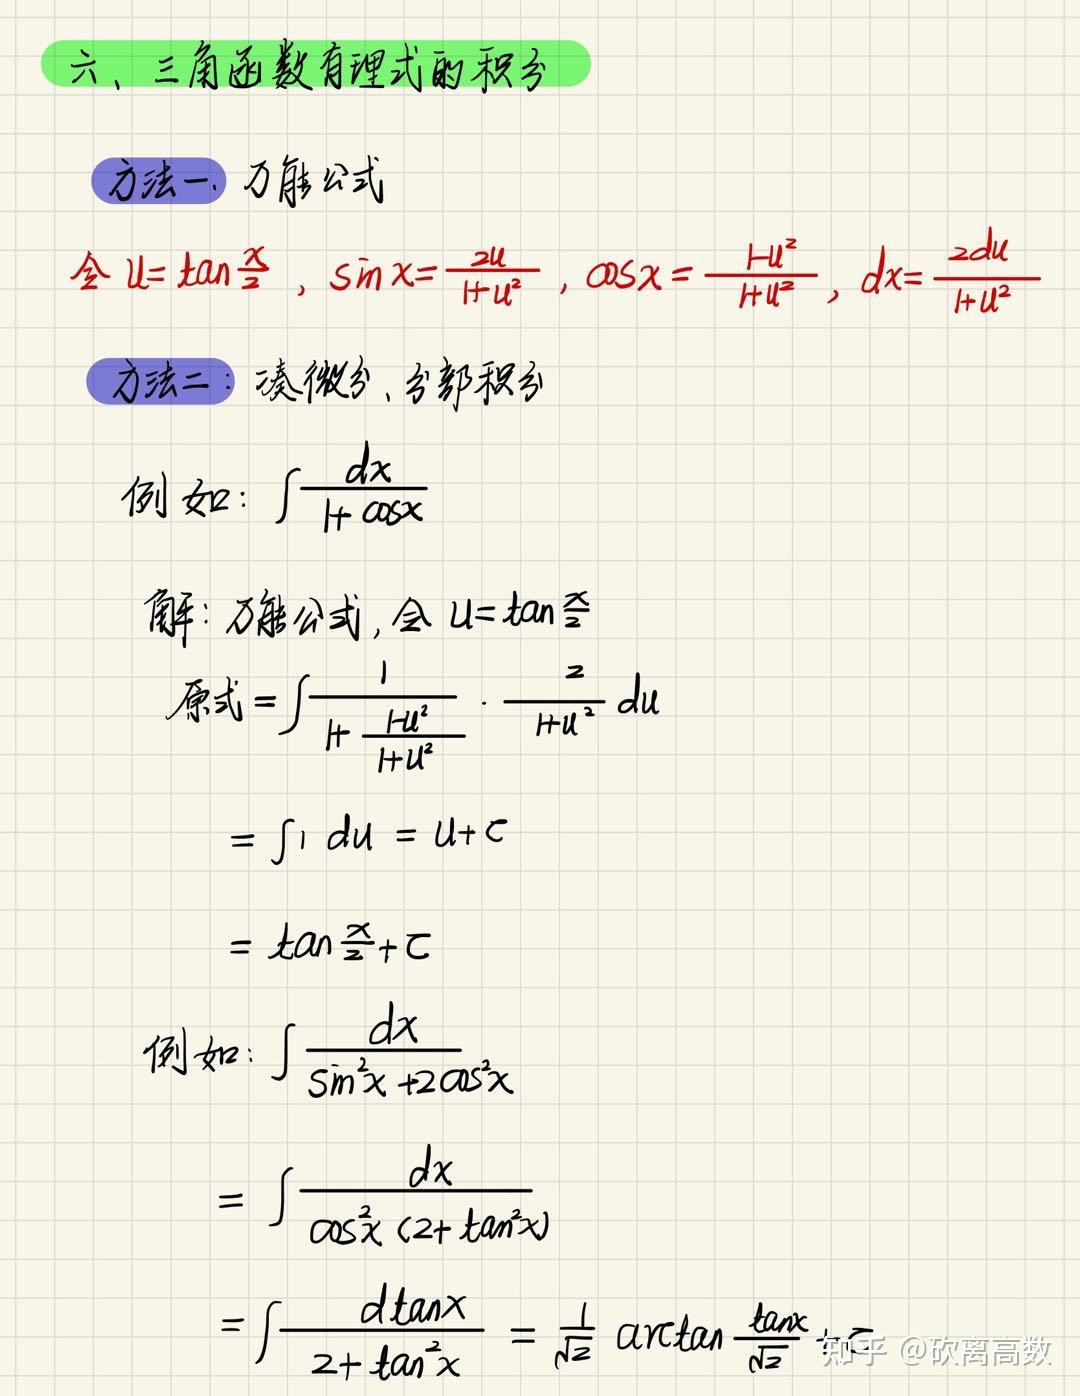 六、三角函数有理式的积分
方法一、万能公式
令 u = tan x/2 , sin x = 2u/(1+u²) , cos x = (1-u²)/(1+u²) , dx = 2du/(1+u²)
方法二: 凑微分、分部积分
例如: ∫ dx/(1+cosx)
解: 万能公式, 令 u = tan x/2
原式 = ∫ 1/(1+(1-u²)/(1+u²)) · 2/(1+u²) du
= ∫ 1 du = u + C
= tan x/2 + C
例如: ∫ dx/(sin²x + 2cos²x)
= ∫ dx/(cos²x (2+tan²x))
= ∫ dtanx/(2+tan²x) = 1/√2 arctan tanx/√2 + C
知乎 @砍离高数